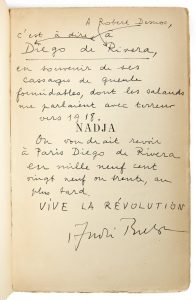 A Robert Desnos,
c'est à dire à
Diego de Rivera,
en souvenir de ses
cassages de gueule
formidables, dont les salauds
me parlaient avec terreur
vers 1918.
NADJA
On voudrait revoir
à Paris Diego de Rivera
en mille neuf cent
vingt neuf ou trente, au
plus tard
VIVE LA RÉVOLUTION
André Breton